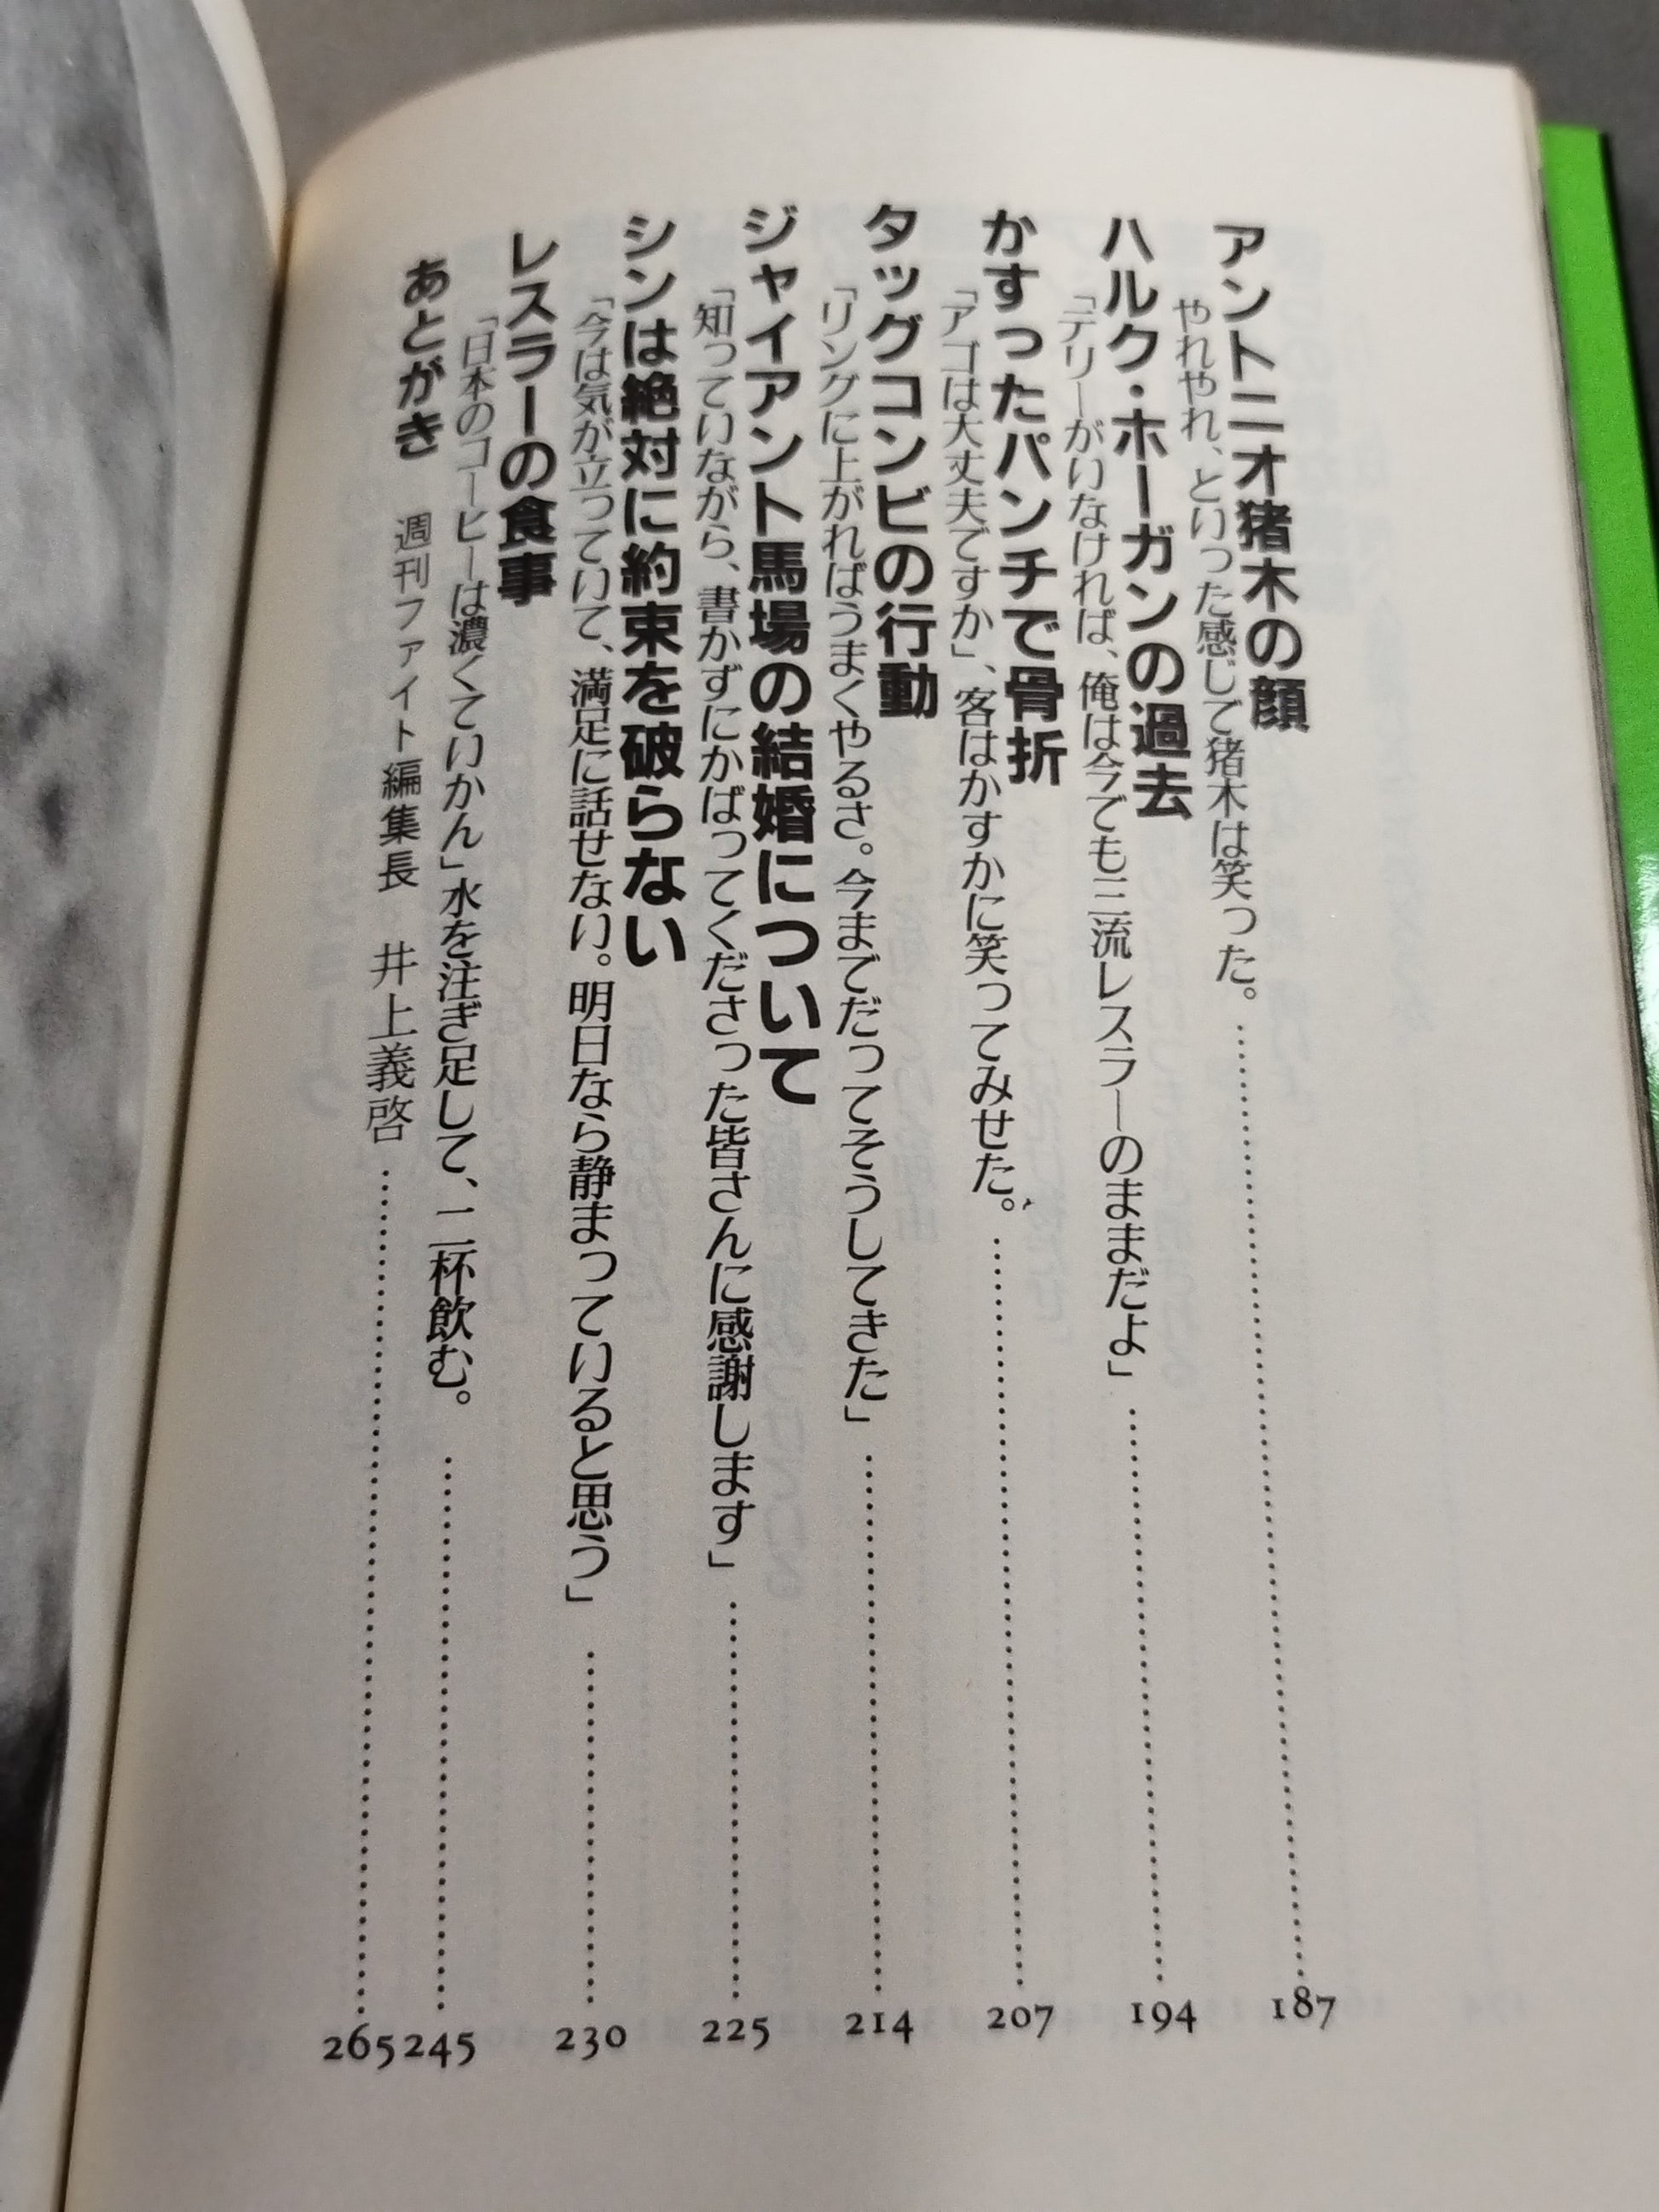 アントニオ猪木の顔
やれやれ、といった感じで猪木は笑った。……187
ハルク・ホーガンの過去
「テリーがいなければ、俺は今でも三流レスラーのままだよ」……194
かすったパンチで骨折
「アゴは大丈夫ですか」、客はかすかに笑ってみせた。……207
タッグコンビの行動
「リングに上がればうまくやるさ。今までだってそうしてきた」……214
ジャイアント馬場の結婚について
「知っていながら、書かずにかばってくださった皆さんに感謝します」……225
シンは絶対に約束を破らない
「今は気が立っていて、満足に話せない。明日なら静まっていると思う」……230
レスラーの食事
「日本のコーヒーは濃くていかん」水を注ぎ足して、二杯飲む。……245
あとがき 週刊ファイト編集長 井上義啓……265